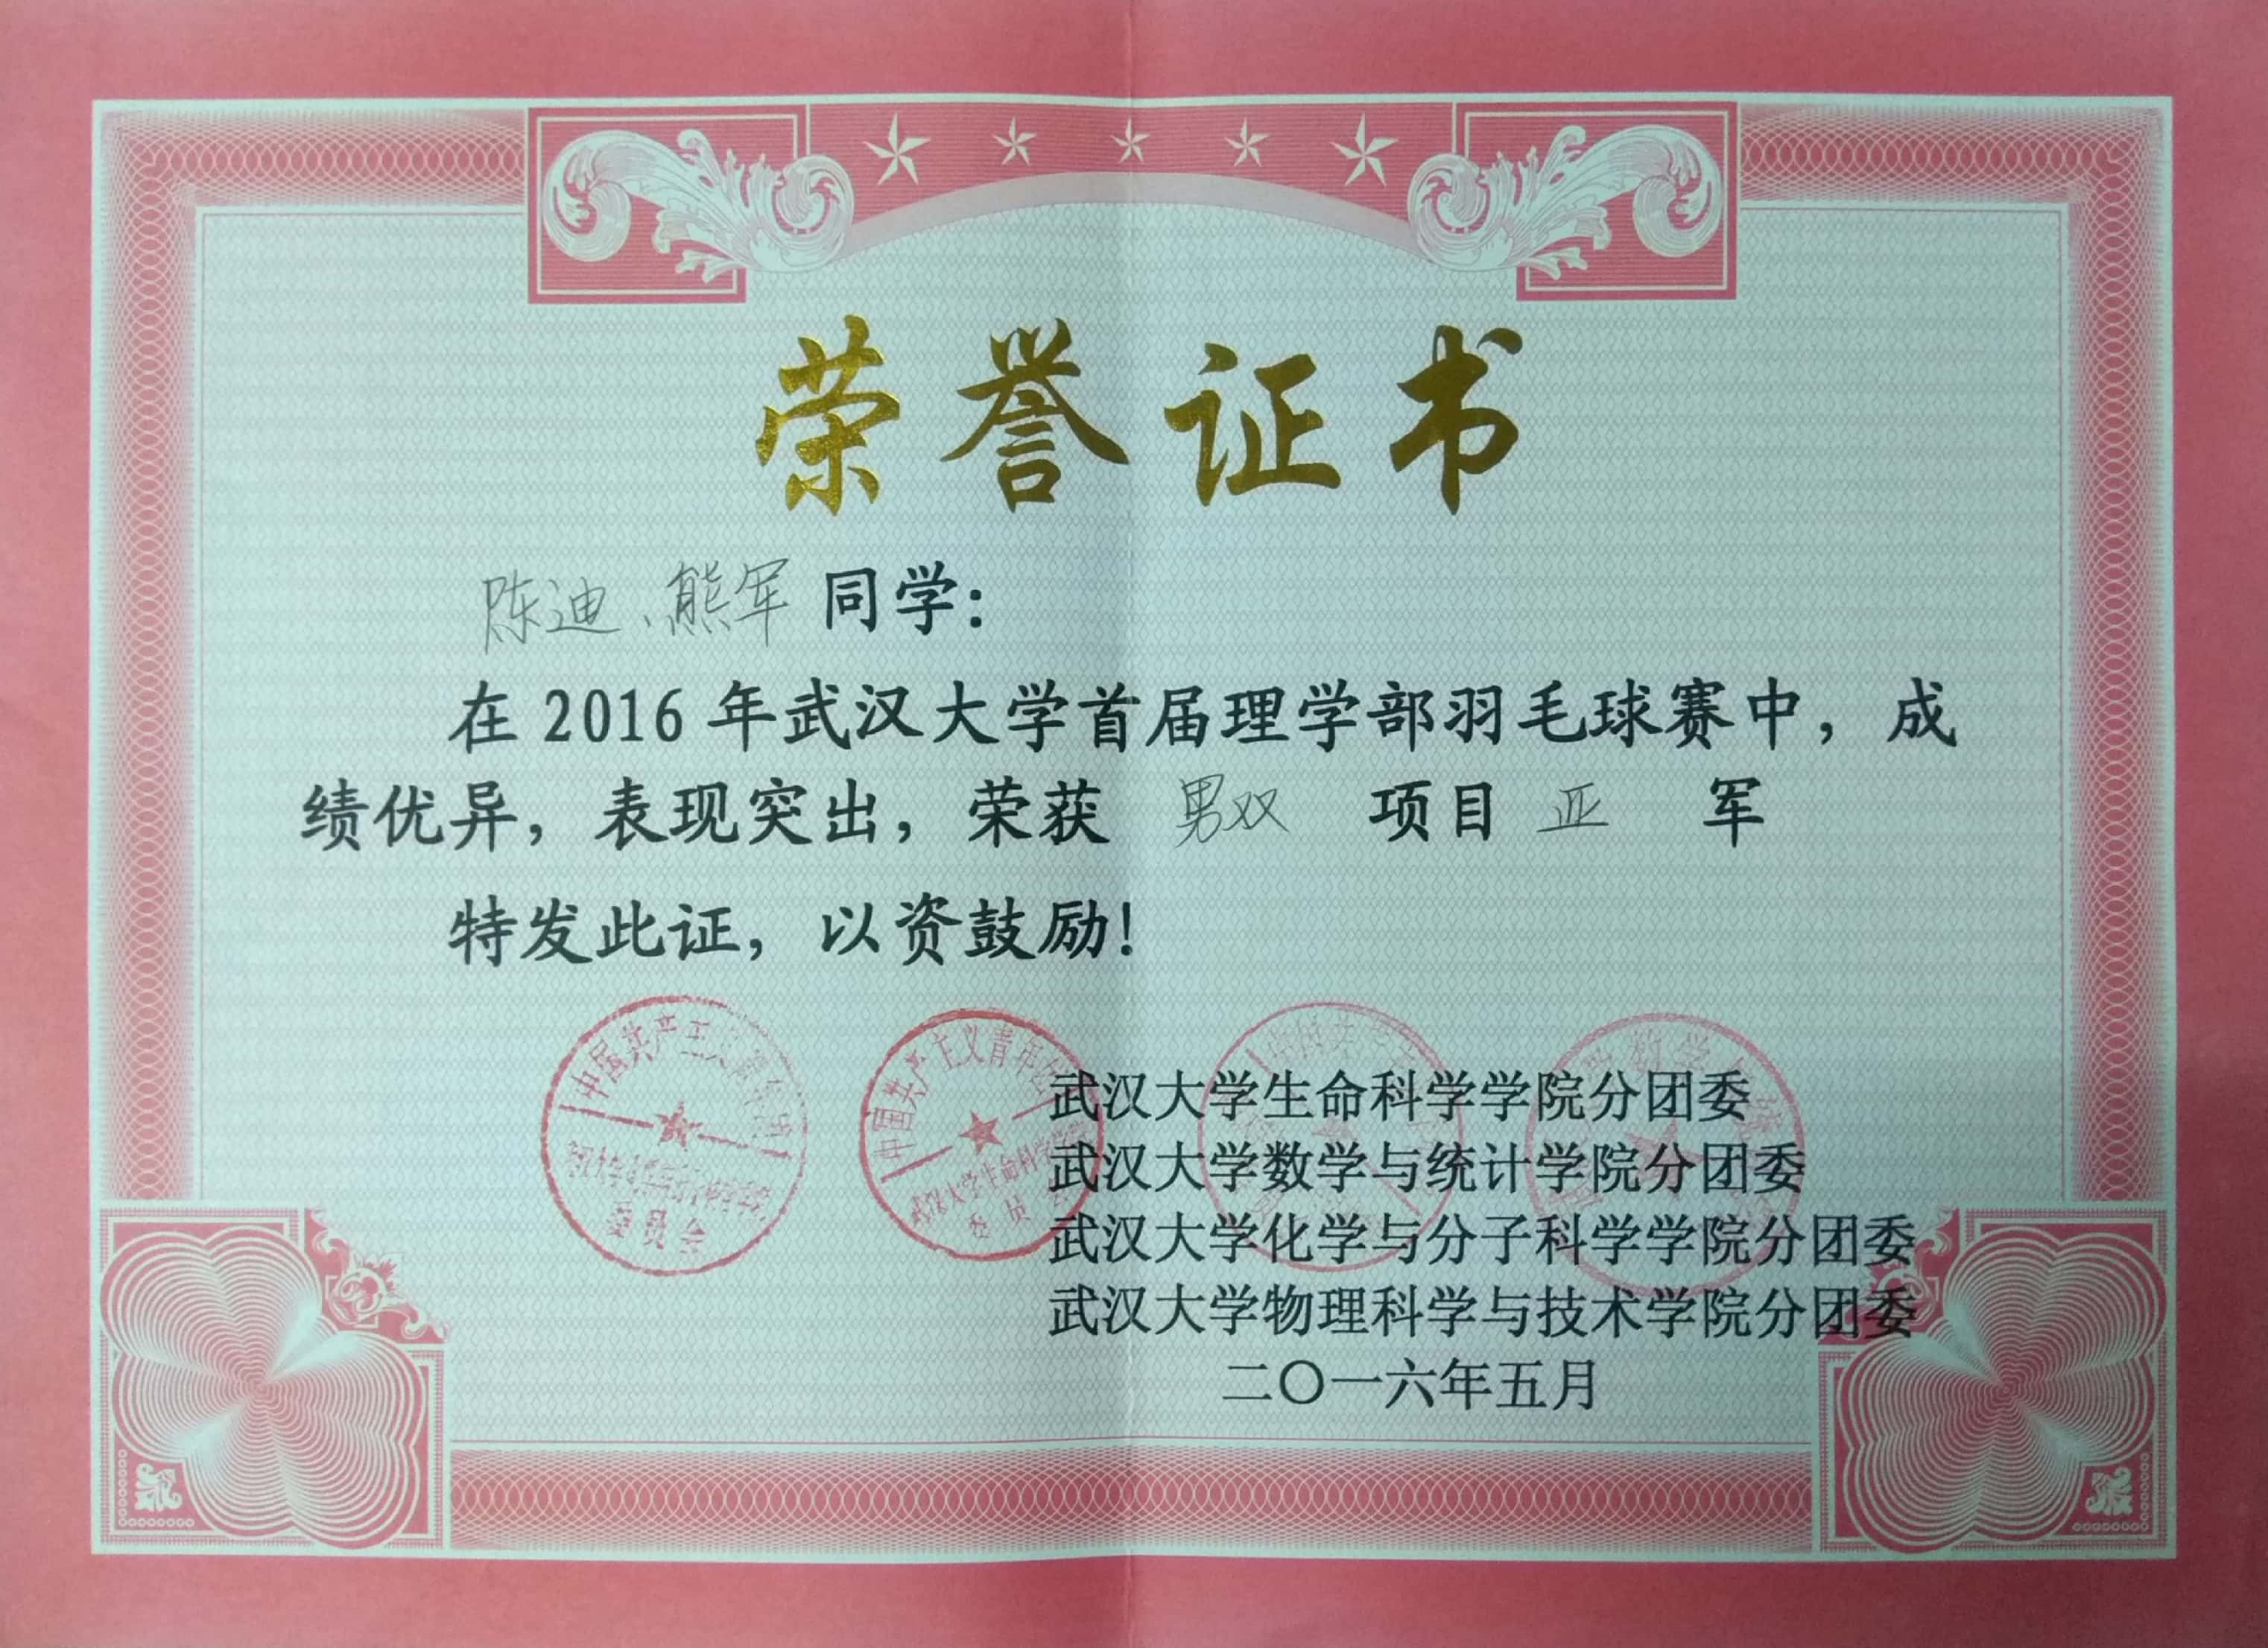 荣誉证书
陈迪、熊军同学：
在2016年武汉大学首届理学部羽毛球赛中，成
绩优异，表现突出，荣获 男双 项目 亚 军
特发此证，以资鼓励！
中国共产主义青年团
委员会
中国共产主义青年团
武汉大学生命科学学院
委员会
武汉大学生命科学学院分团委
武汉大学数学与统计学院分团委
武汉大学化学与分子科学学院分团委
武汉大学物理科学与技术学院分团委
二〇一六年五月